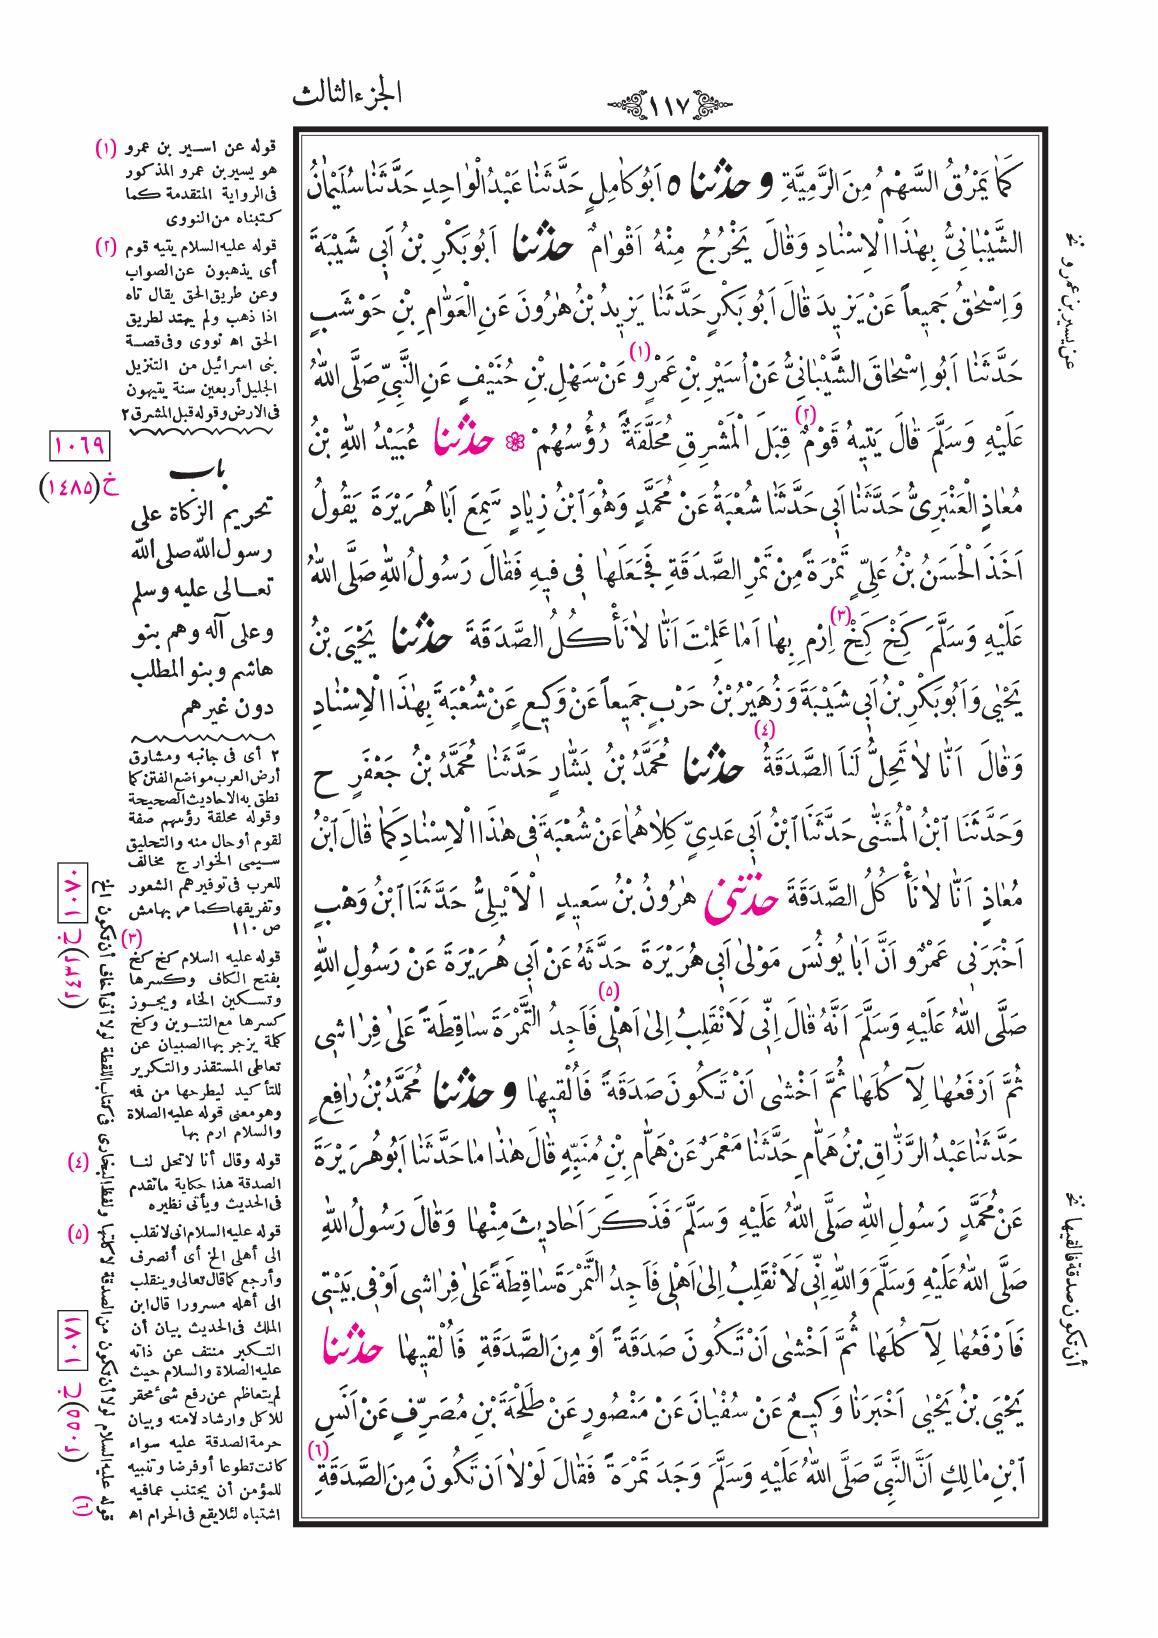 ١١٧
الجزء الثالث
كَمَا يَمْرُقُ السَّهْمُ مِنَ الرَّمِيَّةِ وحدثناه اَبُو كَامِلٍ حَدَّثَنَا عَبْدُ الْوَاحِدِ حَدَّثَنَا سُلَيْمَانُ
الشَّيْبَانِيُّ بِهٰذَا الْاِسْنَادِ وَقَالَ يَخْرُجُ مِنْهُ اَقْوَامٌ حدثنا اَبُو بَكْرِ بْنُ اَبِي شَيْبَةَ
وَاِسْحٰقُ جَمِيعاً عَنْ يَزِيدَ قَالَ اَبُو بَكْرٍ حَدَّثَنَا يَزِيدُ بْنُ هٰرُونَ عَنِ الْعَوَّامِ بْنِ حَوْشَبٍ
حَدَّثَنَا اَبُو اِسْحَاقَ الشَّيْبَانِيُّ عَنْ اُسَيْرِ بْنِ عَمْرٍو (١) عَنْ سَهْلِ بْنِ حُنَيْفٍ عَنِ النَّبِيِّ صَلَّى اللهُ
عَلَيْهِ وَسَلَّمَ قَالَ يَتِيهُ قَوْمٌ (٢) قِبَلَ الْمَشْرِقِ مُحَلَّقَةٌ رُؤُسُهُمْ ❁ حدثنا عُبَيْدُ اللهِ بْنُ
مُعَاذٍ الْعَنْبَرِيُّ حَدَّثَنَا اَبِي حَدَّثَنَا شُعْبَةُ عَنْ مُحَمَّدٍ وَهُوَ ابْنُ زِيَادٍ سَمِعَ اَبَا هُرَيْرَةَ يَقُولُ
اَخَذَ الْحَسَنُ بْنُ عَلِيٍّ تَمْرَةً مِنْ تَمْرِ الصَّدَقَةِ فَجَعَلَهَا فِي فِيهِ فَقَالَ رَسُولُ اللهِ صَلَّى اللهُ
عَلَيْهِ وَسَلَّمَ كِخْ كِخْ (٣) اِرْمِ بِهَا اَمَا عَلِمْتَ اَنَّا لَا نَأْكُلُ الصَّدَقَةَ حدثنا يَحْيَى بْنُ
يَحْيٰى وَاَبُو بَكْرِ بْنُ اَبِي شَيْبَةَ وَزُهَيْرُ بْنُ حَرْبٍ جَمِيعاً عَنْ وَكِيعٍ عَنْ شُعْبَةَ بِهٰذَا الْاِسْنَادِ
وَقَالَ اَنَّا لَا تَحِلُّ لَنَا الصَّدَقَةُ (٤) حدثنا مُحَمَّدُ بْنُ بَشَّارٍ حَدَّثَنَا مُحَمَّدُ بْنُ جَعْفَرٍ ح
وَحَدَّثَنَا ابْنُ الْمُثَنّٰى حَدَّثَنَا ابْنُ اَبِي عَدِيٍّ كِلَاهُمَا عَنْ شُعْبَةَ فِي هٰذَا الْاِسْنَادِ كَمَا قَالَ ابْنُ
مُعَاذٍ اَنَّا لَا نَأْكُلُ الصَّدَقَةَ حدثني هٰرُونُ بْنُ سَعِيدٍ الْاَيْلِيُّ حَدَّثَنَا ابْنُ وَهْبٍ
اَخْبَرَنِي عَمْرٌو اَنَّ اَبَا يُونُسَ مَوْلٰى اَبِي هُرَيْرَةَ حَدَّثَهُ عَنْ اَبِي هُرَيْرَةَ عَنْ رَسُولِ اللهِ
صَلَّى اللهُ عَلَيْهِ وَسَلَّمَ اَنَّهُ قَالَ اِنِّي لَاَنْقَلِبُ اِلٰى اَهْلِي (٥) فَاَجِدُ التَّمْرَةَ سَاقِطَةً عَلٰى فِرَاشِي
ثُمَّ اَرْفَعُهَا لِآكُلَهَا ثُمَّ اَخْشٰى اَنْ تَكُونَ صَدَقَةً فَاُلْقِيهَا وحدثنا مُحَمَّدُ بْنُ رَافِعٍ
حَدَّثَنَا عَبْدُ الرَّزَّاقِ بْنُ هَمَّامٍ حَدَّثَنَا مَعْمَرٌ عَنْ هَمَّامِ بْنِ مُنَبِّهٍ قَالَ هٰذَا مَا حَدَّثَنَا اَبُو هُرَيْرَةَ
عَنْ مُحَمَّدٍ رَسُولِ اللهِ صَلَّى اللهُ عَلَيْهِ وَسَلَّمَ فَذَكَرَ اَحَادِيثَ مِنْهَا وَقَالَ رَسُولُ اللهِ
صَلَّى اللهُ عَلَيْهِ وَسَلَّمَ وَاللهِ اِنِّي لَاَنْقَلِبُ اِلٰى اَهْلِي فَاَجِدُ التَّمْرَةَ سَاقِطَةً عَلٰى فِرَاشِي اَوْ فِي بَيْتِي
فَاَرْفَعُهَا لِآكُلَهَا ثُمَّ اَخْشٰى اَنْ تَكُونَ صَدَقَةً اَوْ مِنَ الصَّدَقَةِ فَاُلْقِيهَا حدثنا
يَحْيَى بْنُ يَحْيٰى اَخْبَرَنَا وَكِيعٌ عَنْ سُفْيَانَ عَنْ مَنْصُورٍ عَنْ طَلْحَةَ بْنِ مُصَرِّفٍ عَنْ اَنَسِ
ابْنِ مَالِكٍ اَنَّ النَّبِيَّ صَلَّى اللهُ عَلَيْهِ وَسَلَّمَ وَجَدَ تَمْرَةً فَقَالَ لَوْلَا اَنْ تَكُونَ مِنَ الصَّدَقَةِ (٦)
عن يسير بن عمرو نخ
أن تكون صدقة فالقيها نخ
(١) قوله عن اسير بن عمرو
هو يسير بن عمرو المذكور
فى الرواية المتقدمة كما
كتبناه من النووى
(٢) قوله عليه السلام يتيه قوم
أى يذهبون عن الصواب
وعن طريق الحق يقال تاه
اذا ذهب ولم يهتد لطريق
الحق اه نووى وفى قصة
بنى اسرائيل من التنزيل
الجليل أربعين سنة يتيهون
فى الارض وقوله قبل المشرق ٢
١٠٦٩
خ (١٤٨٥)
باب
تحريم الزكاة على
رسول الله صلى الله
تعالى عليه وسلم
وعلى آله وهم بنو
هاشم وبنو المطلب
دون غيرهم
٢ أى فى جانبه ومشارق
أرض العرب مواضع الفتن كما
نطق به الاحاديث الصحيحة
وقوله محلقة رؤسهم صفة
لقوم أو حال منه والتحليق
سيمى الخوارج مخالف
للعرب فى توفيرهم الشعور
وتفريقها كما مر بهامش
ص ١١٠
(٣) قوله عليه السلام كخ كخ
بفتح الكاف وكسرها
وتسكين الخاء ويجوز
كسرها مع التنوين وكخ
كلمة يزجر بها الصبيان عن
تعاطى المستقذر والتكرير
للتأكيد ليطرحها من فه
وهو معنى قوله عليه الصلاة
والسلام ارم بها
(٤) قوله وقال أنا لا تحل لنا
الصدقة هذا حكاية ما تقدم
فى الحديث ويأتى نظيره
(٥) قوله عليه السلام انى لانقلب
الى أهلى الخ أى أنصرف
وأرجع كما قال تعالى وينقلب
الى أهله مسرورا قال ابن
الملك فى الحديث بيان أن
التكبر منتف عن ذاته
عليه الصلاة والسلام حيث
لم يتعاظم عن رفع شئ محقر
للأكل وارشاد لامته وبيان
حرمة الصدقة عليه سواء
كانت تطوعا أو فرضا وتنبيه
للمؤمن أن يجتنب عما فيه
اشتباه لئلا يقع فى الحرام اه
(٦) قوله عليه السلام لولا أن تكون من الصدقة لاكلتها ولفظ البخارى فى كتاب اللقطة لولا أنى أخاف أن تكون الخ
١٠٨٠
١٠٨١